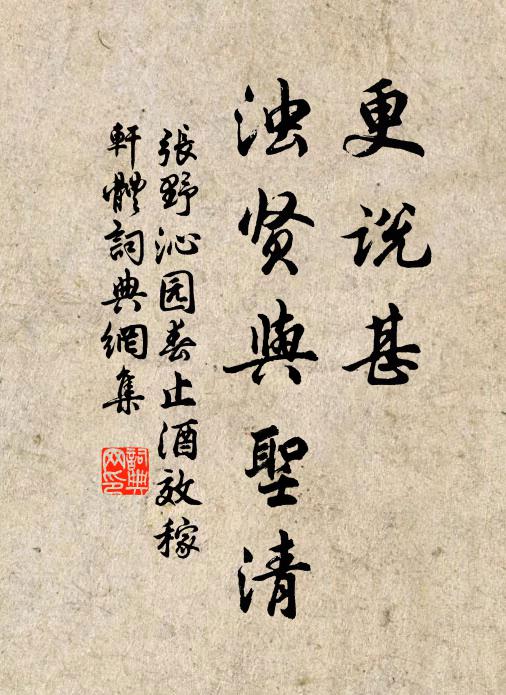 更说甚
浊贤與聖清
張野沁园春止酒效稼
軒體詞典網集
詞典网印